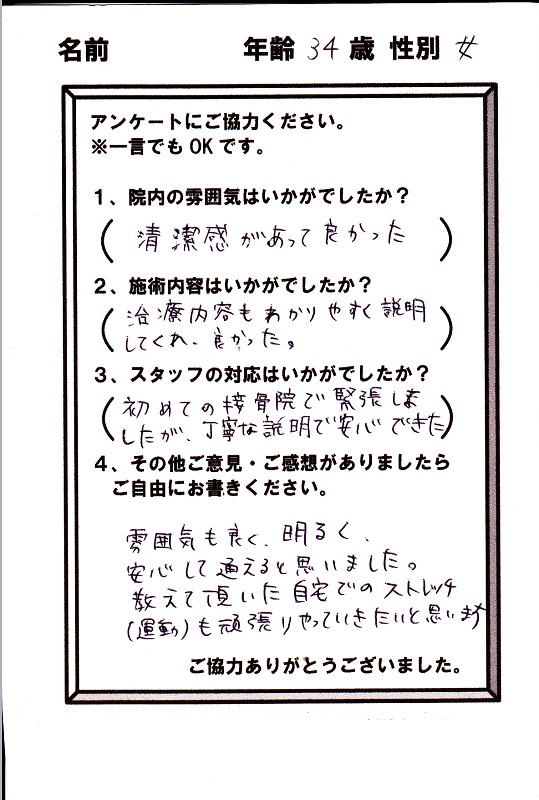 名前 年齢 34 歳 性別 女
アンケートにご協力ください。
※一言でも OK です。
1、院内の雰囲気はいかがでしたか?
(清潔感があって良かった)
2、施術内容はいかがでしたか?
(治療内容もわかりやすく説明
してくれ、良かった。)
3、スタッフの対応はいかがでしたか?
(初めての接骨院で緊張しま
したが、丁寧な説明で安心できた)
4、その他ご意見・ご感想がありましたら
ご自由にお書きください。
雰囲気も良く、明るく、
安心して通えると思いました。
教えて頂いた自宅でのストレッチ
(運動)も頑張りやっていきたいと思います
ご協力ありがとうございました。